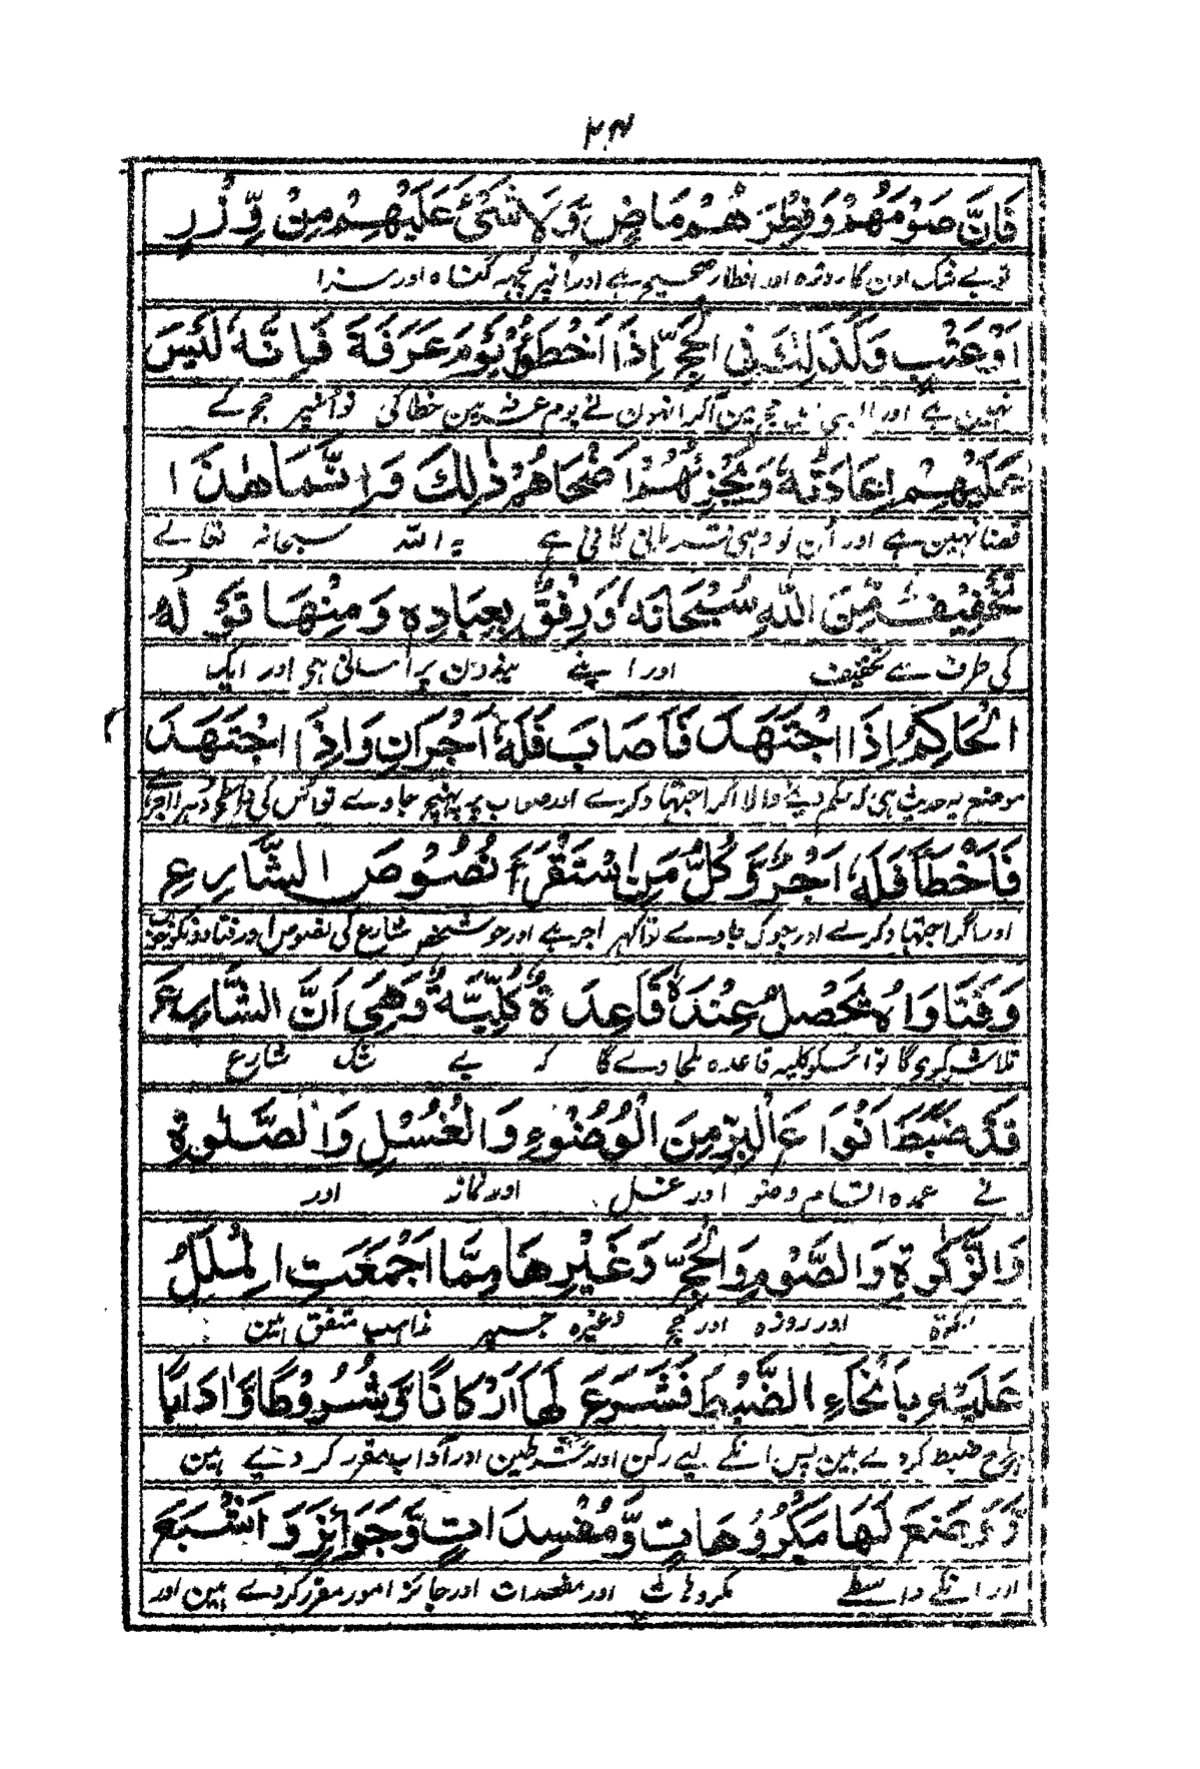 ۲۴
فَاِنَّ صَوْمَهُمْ وَفِطْرَهُمْ مَاضٍ وَّلَا شَیْئَ عَلَیْهِمْ مِنْ وِّزْرٍ
تو بے شک اون کا روزہ اور افطار صحیح ہے اور اُنپر کچہہ گناہ اور سزا
اَوْ عَتْبٍ وَکَذٰلِكَ فِی الْحَجِّ اِذَا اَخْطَؤُا یَوْمَ عَرَفَةَ فَاِنَّهٗ لَیْسَ
نہین ہے اور حج مین اگر انہون نے یوم عرفہ مین خطا کی تو اُنپر حج کے
عَلَیْهِمْ اِعَادَتُهٗ وَیُجْزِئُهُمْ اَضْحَاهُمْ ذٰلِكَ وَاِنَّمَا هٰذَا
قضا نہین ہے اور اُن کو وہی قربانی کافی ہے یہ اللہ سبحانہ تعالے
تَخْفِیْفٌ مِّنَ اللّٰهِ سُبْحَانَهٗ وَرِفْقٌ بِعِبَادِهٖ وَمِنْهَا قَوْلُهٗ
کی طرف سے تخفیف اور اپنے بندون پر آسانی ہی اور ایک
الْحَاکِمُ اِذَا اجْتَهَدَ فَاَصَابَ فَلَهٗ اَجْرَانِ وَاِذَا اجْتَهَدَ
موضع یہ حدیث ہی کہ حکم دینے والا اگر اجتہاد کرے اور صواب پر پہنچ جاوے تو اُس کی واسطے دُہرا اجر ہے
فَاَخْطَأَ فَلَهٗ اَجْرٌ وَّکُلُّ مَنِ اسْتَقْرَءَ نُصُوْصَ الشَّارِعِ
اور اگر اجتہاد کرے اور چوک جاوے تو اکہر اجر ہے اور جو شخص شارع کی نصوص اور فتاوونکو خوب
وَفَتَاوَاهُ تَحْصُلُ عِنْدَهٗ قَاعِدَةٌ کُلِّیَّةٌ وَهِیَ اَنَّ الشَّارِعَ
تلاش کری گا تو اُسکو کلیہ قاعدہ ملجاوے گا کہ بے شک شارع
قَدْ ضَبَطَ اَنْوَاعَ الْبِرِّ مِنَ الْوُضُوْءِ وَالْغُسْلِ وَالصَّلٰوةِ
نے عمدہ اقسام وضو اور غسل اور نماز اور
وَالزَّکٰوةِ وَالصَّوْمِ وَالْحَجِّ وَغَیْرِهَا مِمَّا اَجْمَعَتِ الْمِلَلُ
زکوٰۃ اور روزہ اور حج وغیرہ جسپر مذاہب متفق ہین
عَلَیْهِ بِاَنْحَاءِ الضَّبْطِ فَشَرَعَ لَهَا اَرْکَانًا وَّشُرُوْطًا وَّاٰدَابًا
ضبط کردے ہین پس انکے لیے رکن اور شرطین اور آداب مقرر کردئیے ہین
وَّوَضَعَ لَهَا مَکْرُوْهَاتٍ وَّمُفْسِدَاتٍ وَّجَوَائِزَ وَاَشْبَعَ
اور انکے واسطے مکروہات اور مفسدات اور جائز امور مقرر کردے ہین اور